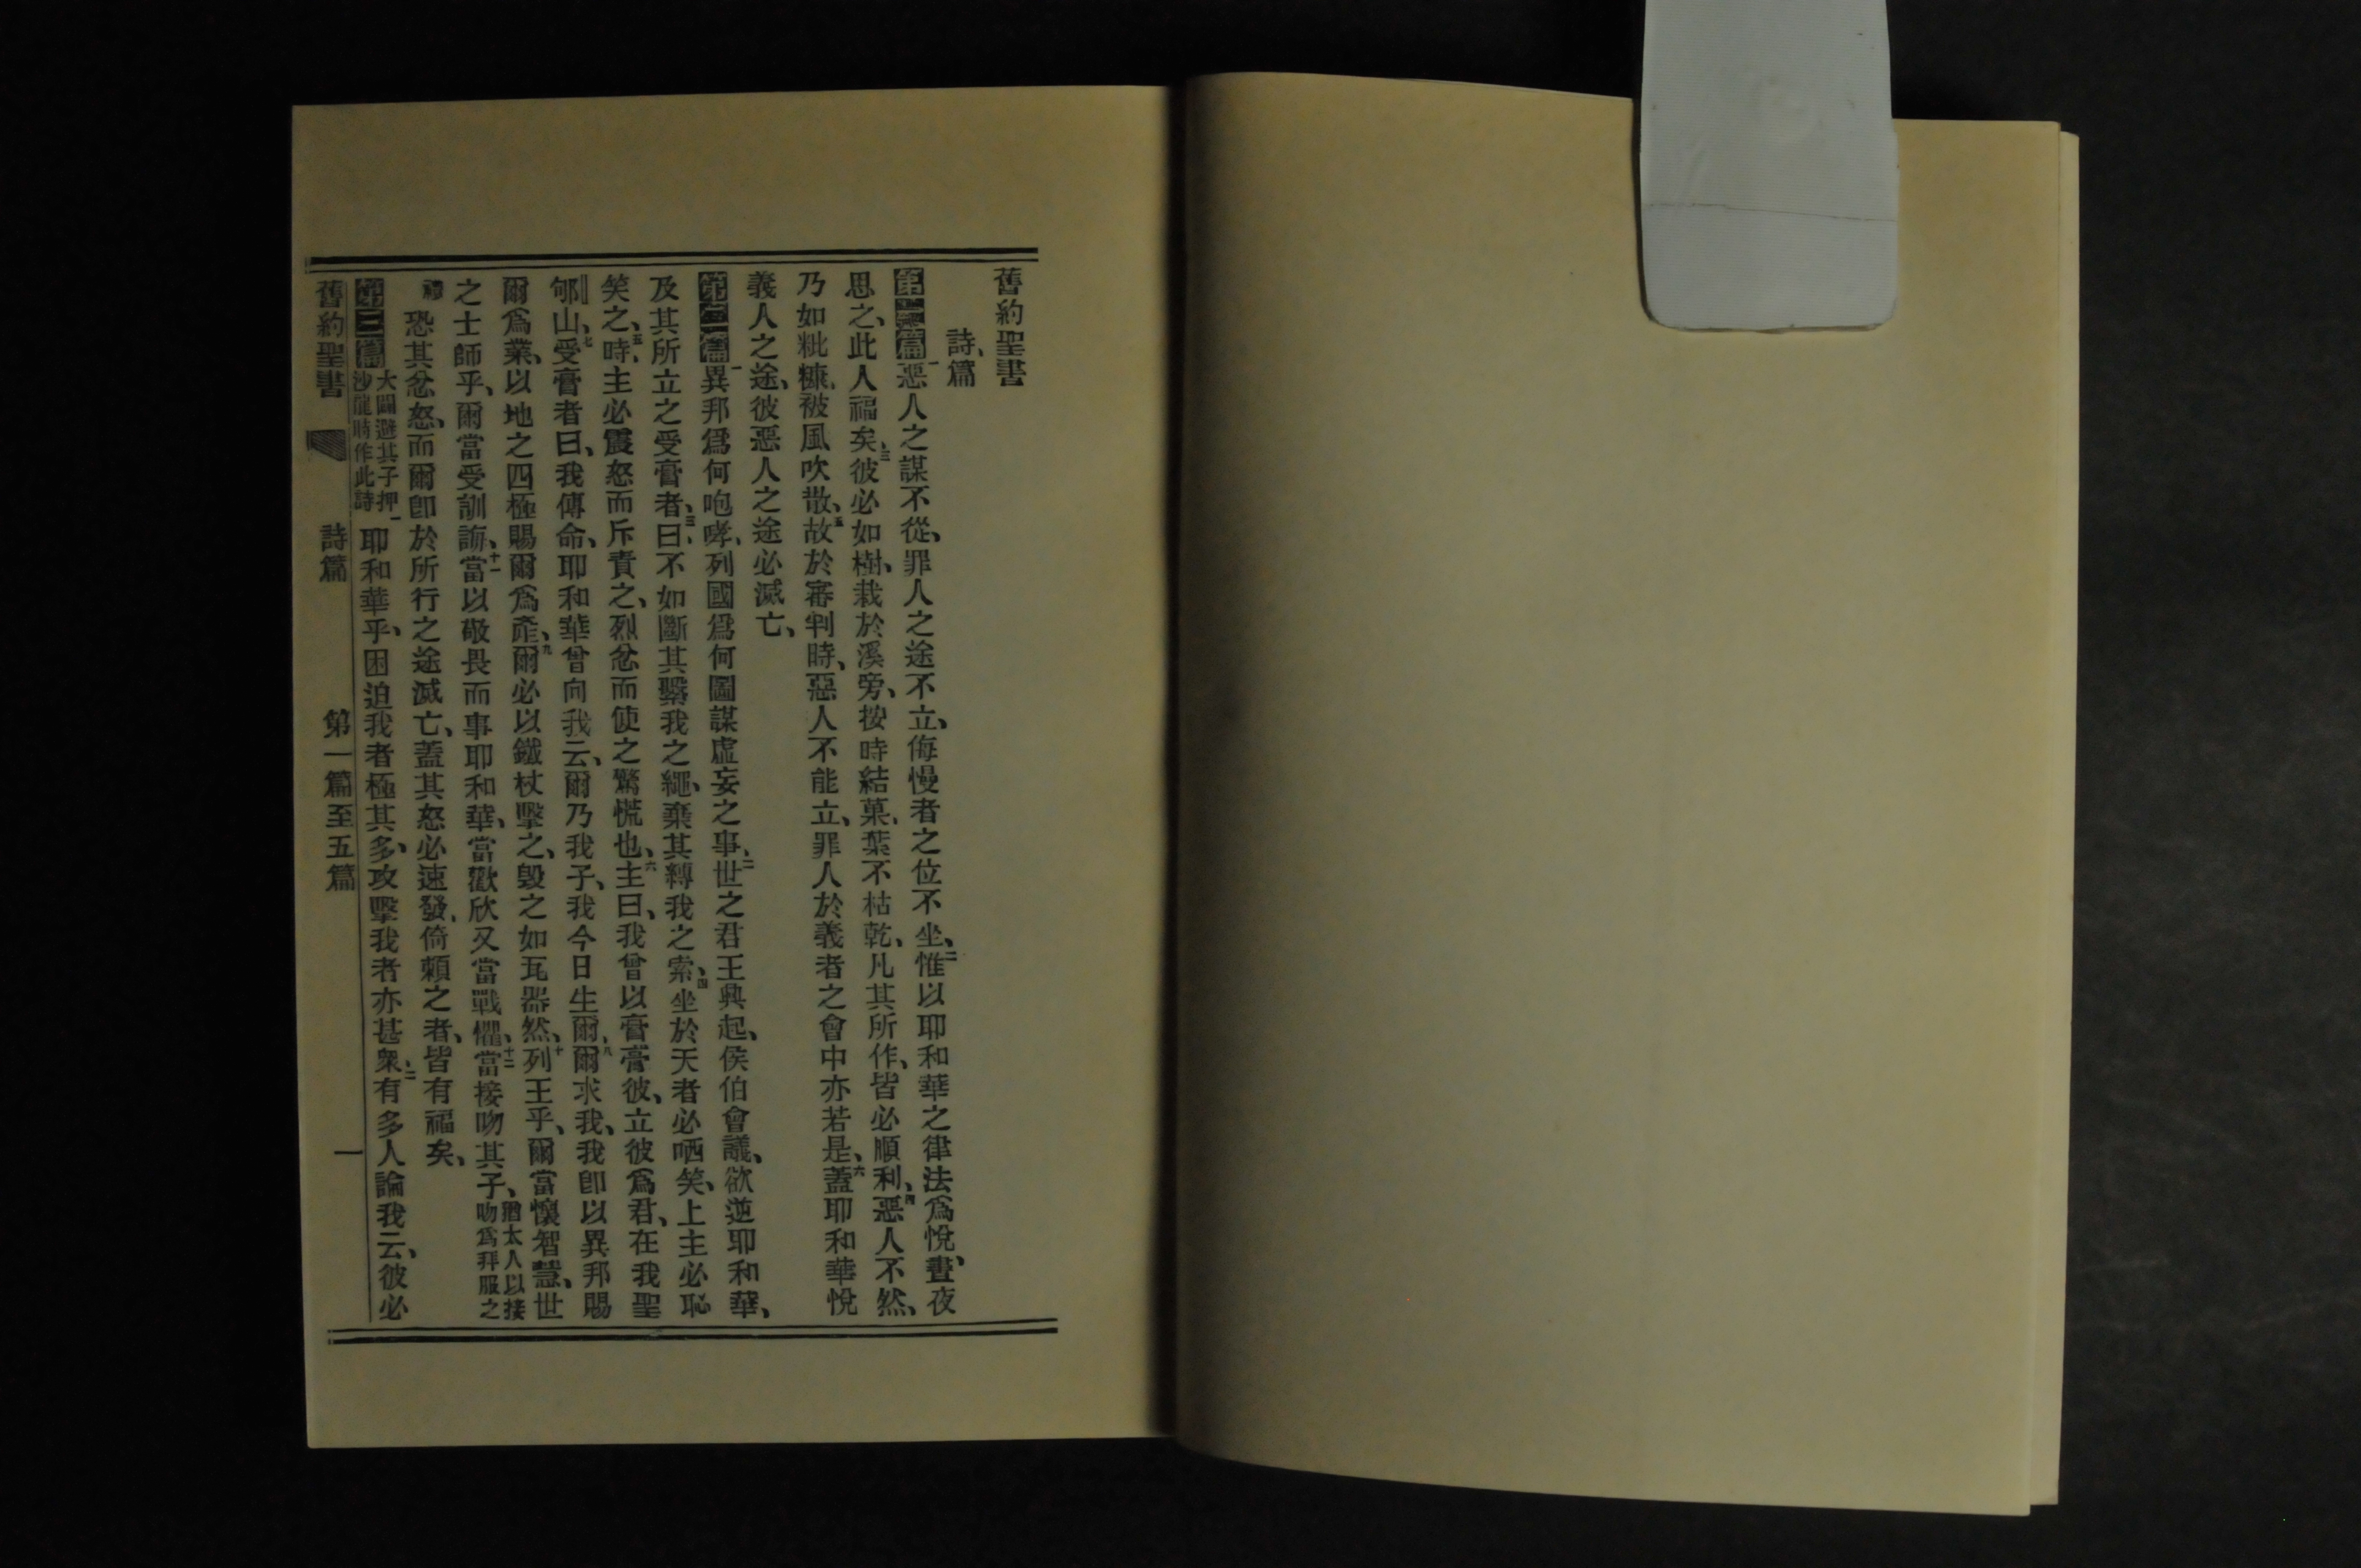 舊約聖書
詩篇
第一篇 一惡人之謀不從、罪人之途不立、侮慢者之位不坐、二惟以耶和華之律法爲悅、晝夜
思之、此人福矣、三彼必如樹、栽於溪旁、按時結菓、葉不枯乾、凡其所作、皆必順利、四惡人不然、
乃如粃糠、被風吹散、五故於審判時、惡人不能立、罪人於義者之會中亦若是、六蓋耶和華悅
義人之途、彼惡人之途必滅亡、
第二篇 一異邦爲何咆哮、列國爲何圖謀虛妄之事、二世之君王興起、侯伯會議、欲逆耶和華、
及其所立之受膏者、三曰、不如斷其繫我之繩、棄其縛我之索、四坐於天者必哂笑、上主必恥
笑之、五時、主必震怒而斥責之、烈忿而使之驚慌也、六主曰、我曾以膏膏彼、立彼爲君、在我聖
郇山、七受膏者曰、我傳命、耶和華曾向我云、爾乃我子、我今日生爾、八爾求我、我卽以異邦賜
爾爲業、以地之四極賜爾爲產、九爾必以鐵杖擊之、毀之如瓦器然、十列王乎、爾當懷智慧、世
之士師乎、爾當受訓誨、十一當以敬畏而事耶和華、當歡欣又當戰懼、十二當接吻其子、猶太人以接吻爲拜服之
恐其忿怒、而爾卽於所行之途滅亡、蓋其怒必速發、倚賴之者、皆有福矣、
第三篇 大闢避其子押沙龍時作此詩 一耶和華乎、困迫我者極其多、攻擊我者亦甚衆、二有多人論我云、彼必
舊約聖書 詩篇 第一篇至五篇 一